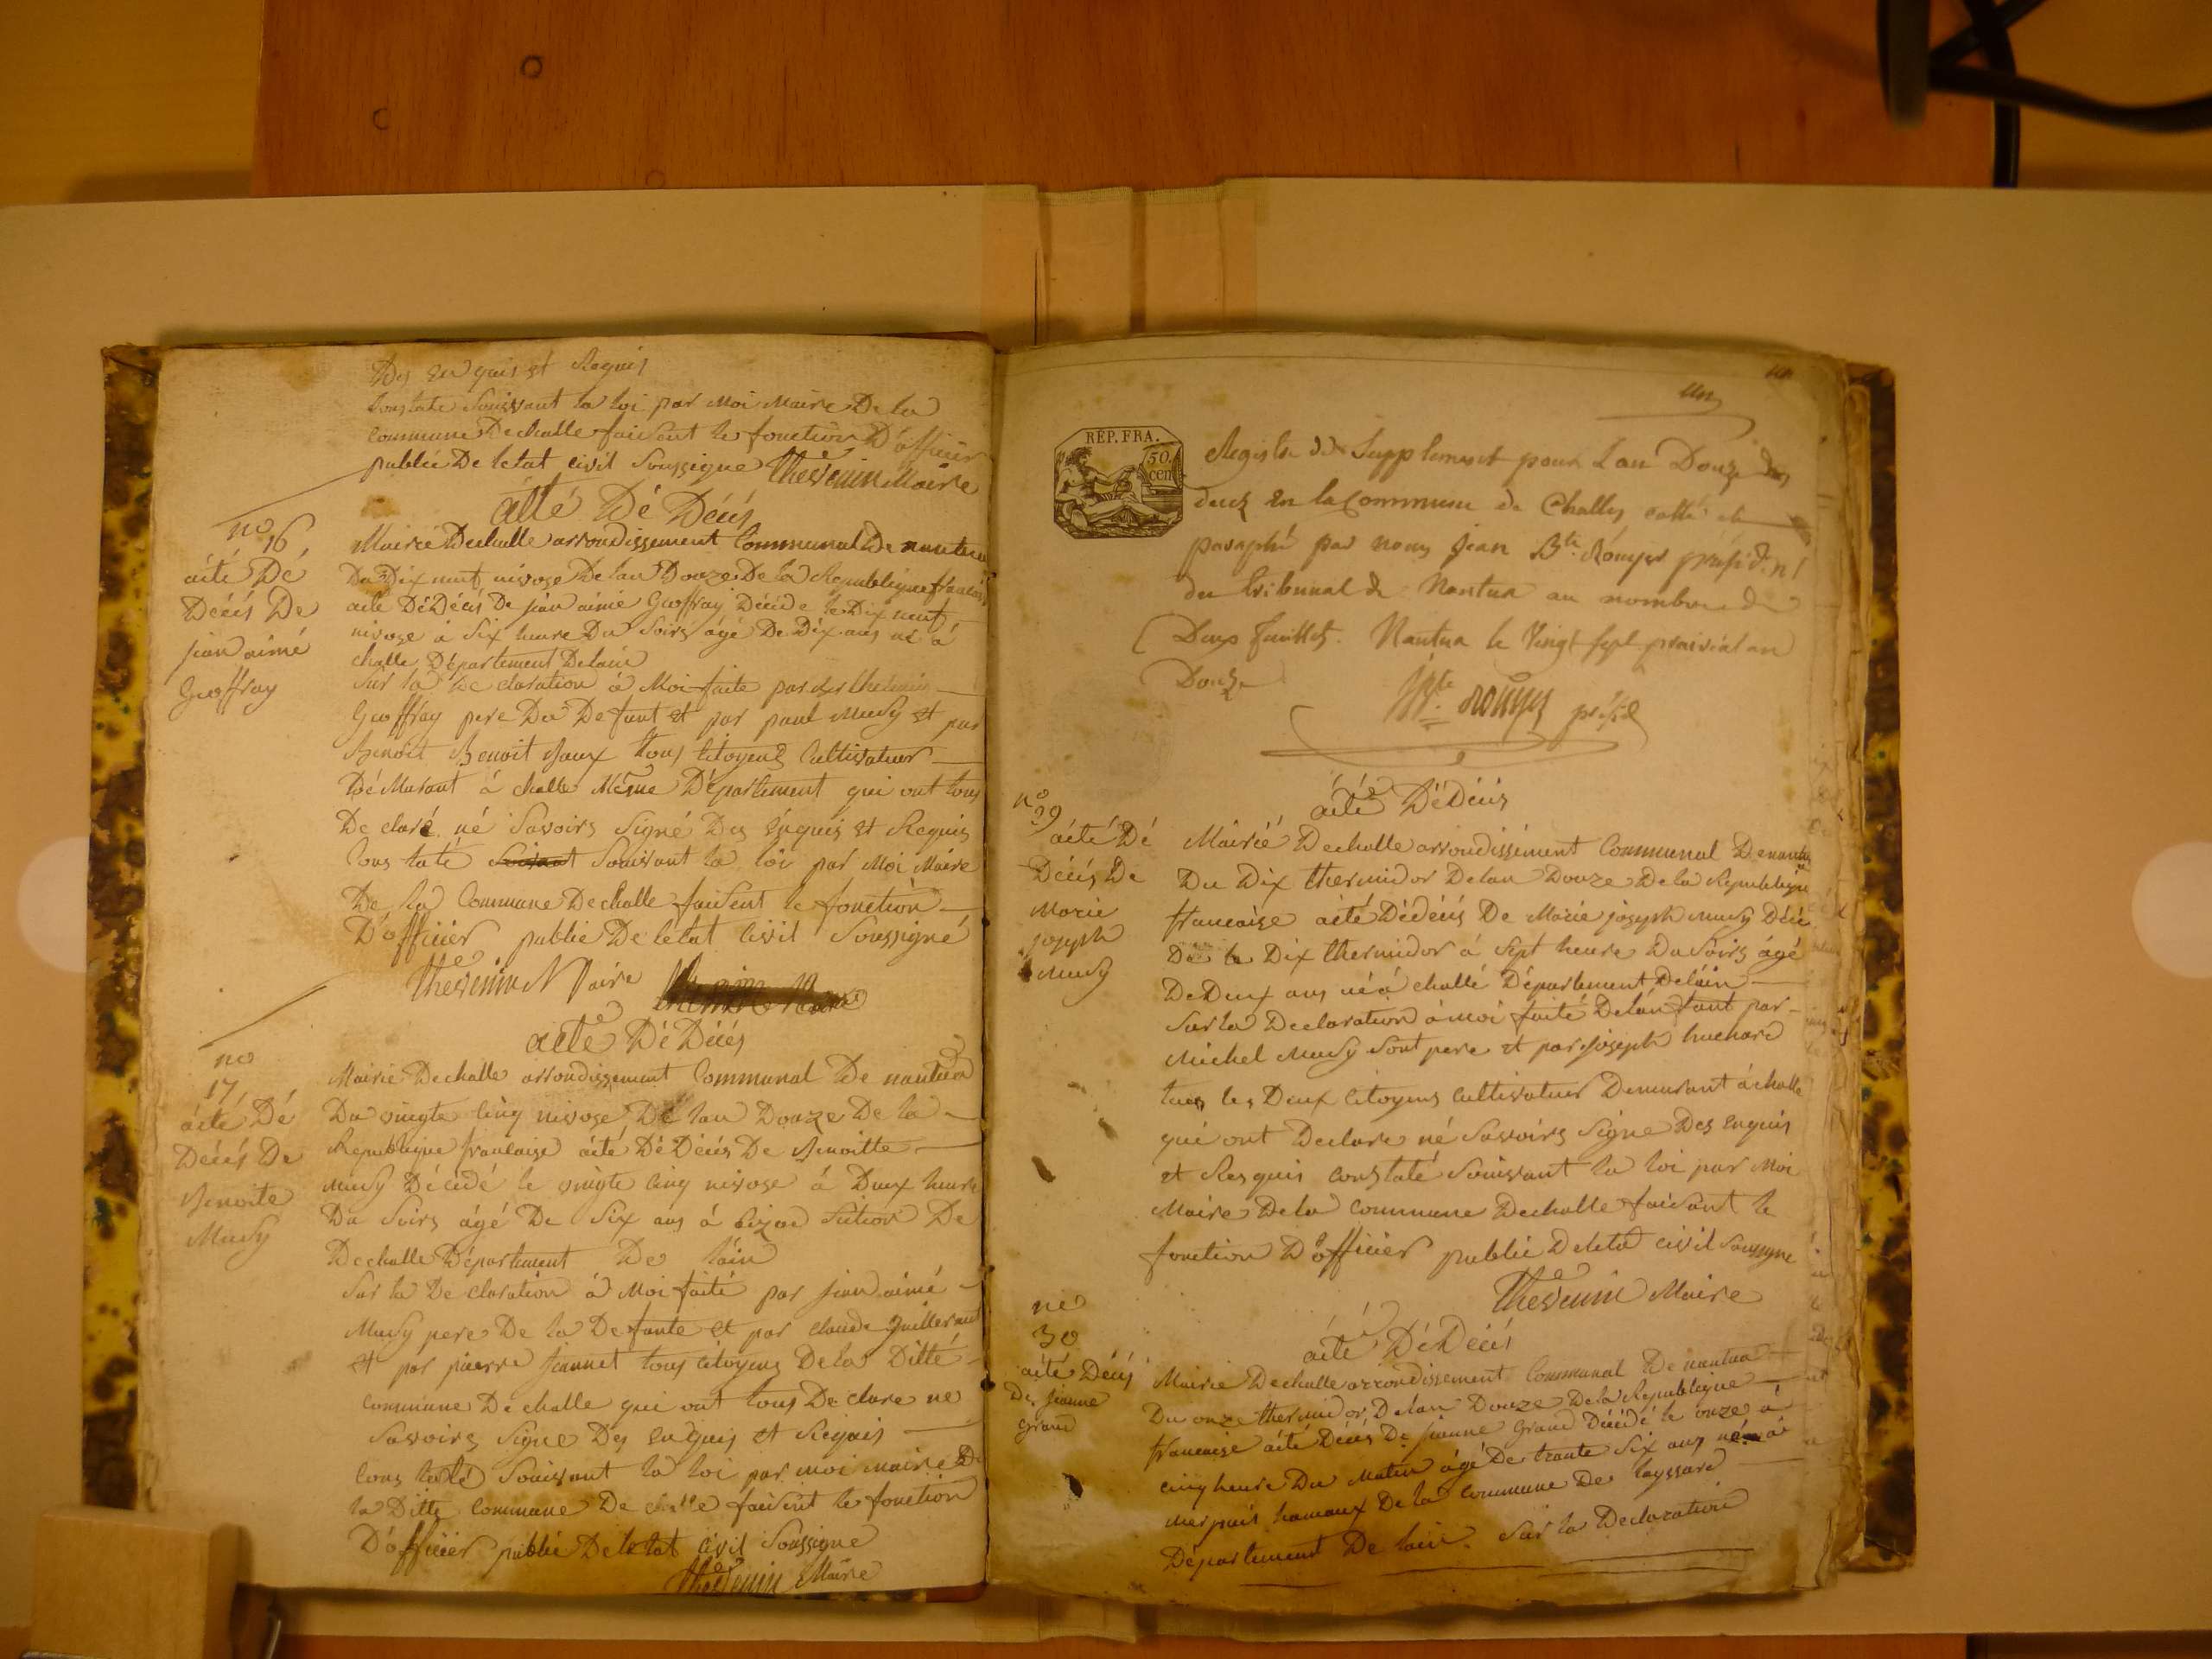 Des enquis et Requis
Constate Souissant la loi par Moi Maire De la
Commune De challe faisent le fonction D'officier
public De letat Civil Soussigne Thevenin Maire
acté Dé Décés
no 16
acté Dé
Décés De
jean aimé
Geoffray
Mairie De challe arrondissement Communal De nantua
Du Dix neuf nivose De lan Douze De la Republique francoise
acté Dé Décés De jean aimé Geoffray Décéde le Dix neuf
nivose á Six heure Du Soirs ágé De Dix ans né á
challe Département De lain
Sur la De claration á Moi faite par
Geoffray pere Du De funt et par paul Musy et par
Benoit Benoit tous Citoyens Cultivateur
Dé Murant á challe Méme Département qui ont tous
De claré né Savoirs Signé Des énquis et Requis
Cons taté Souissant la loi par Moi Maire
De la Commune De challe faisent le fonction
D'officier public De letat Civil Soussigné
Thevenin Maire
acté Dé Décés
no
17
ácté Dé
Décés De
Benoite
Musy
Mairie De challe arrondissement Communal De nantua
Du vingte Cinq nivose De lan Douze De la
Republique francaise ácté Dé Décés De Benoitte
Musy Décédé le vingte Cinq nivose á Deux heure
Du Soirs ágé De Six ans á Section De
De challe Département De láin
Sur la De claration á Moi faité par jean aimé
Musy pere De la De funte et par claude Guillermet
et par pierre jannet tous citoyens De la Ditté
Commune De challe qui ont tous De clare ne
Savoirs Signe Des enquis et Requis
Cons taté Souissant la loi par moi maire De
la Ditte Commune De challe faisent le fonction
D'officier public De letat Civil Soussigne
Thevenin Maire
un
REP. FRA.
50
cen
Registre de Supplement pour Lan Douze des
deces En la Commune de Challes cotté et
paraphé par nous Jean Bte. Rouyer présidt
du tribunal de Nantua au nombre de
Deux feuillets. Nantua le Vingt sept prairial an
Douze
JBte. Rouyer présid
ácté Dé Décés
no
29
ácté Dé
Décés De
Marie
joseph
Musy
Mairié De challe arrondissément Communal De nantua
Du Dix thermidor De lan Douze De la Republique
francaise ácté Dé décés De Marie joseph Musy Décé
De le Dix thermidor á Sept heure Du Soirs ágé
De Deux ans né á challé Département De láin
Sur la Declaration á moi faité De lán fant par
Michel Musy Sont pere et par joseph huchard
tues les Deux Citoyens cultivateur Demurant á challe
qui ont Declare né Savoirs Signe Des enquis
et Resquis Constaté Souissant la loi par Moi
Maire De la Commune De challe faisant le
fonction D'officier public De leta civil Soussigne
Thevenin Maire
no
30
acté Décés
De jeanne
Grand
ácté Dé Décés
Mairie De challe arrondissement Communal De nantua
Du onze thermidor De lan Douze De la Republique
francaise ácté Décés De jeanne Grand Décédé le onze á
cinq heure Du Matin ágé De trante Six ans né á
hamaux De la Commune De layssard
Département De lain. Sur la Declaration